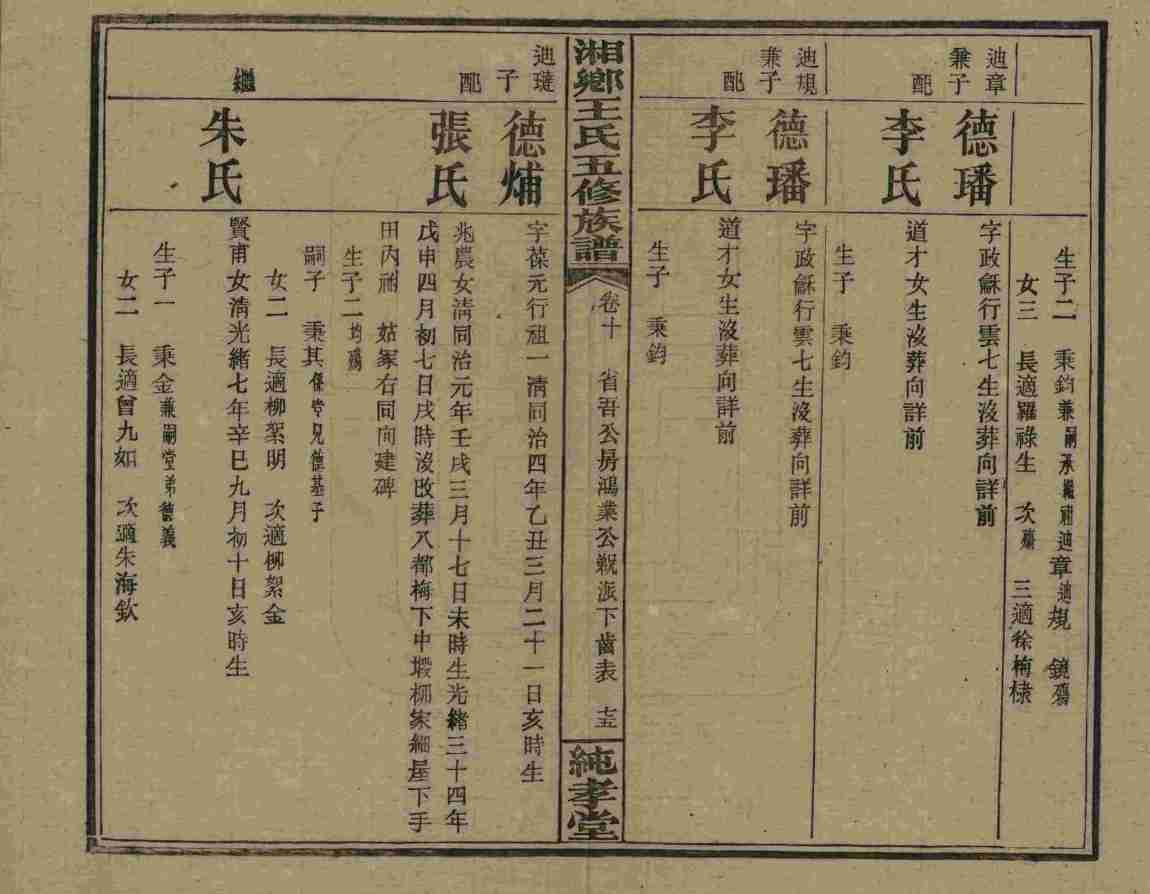 生子二　秉鈞兼嗣承繼迪章迪規　鏡殤
女三　長適羅祿生　次殤　三適徐梅棣
迪章兼子
德璠
字政龢行雲七生沒葬向詳前
配
李氏
道才女生沒葬向詳前
生子　秉鈞
迪規兼子
德璠
字政龢行雲七生沒葬向詳前
配
李氏
道才女生沒葬向詳前
生子　秉鈞
湘鄉王氏五修族譜
卷十　省吾公房鴻業公派下齒表　七五
純孝堂
迪璉子
德煵
字葆元行祖一清同治四年乙丑三月二十一日亥時生
配
張氏
兆農女清同治元年壬戌三月十七日未時生光緒三十四年
戊申四月初七日戌時沒改葬八都梅下中塅柳家細屋下手
田內祔　姑冢右同向建碑
生子二均殤
嗣子　秉其係堂兄德基子
女二　長適柳絮明　次適柳絮金
繼
朱氏
賢甫女清光緒七年辛巳九月初十日亥時生
生子一　秉金兼嗣堂弟德義
女二　長適曾九如　次適朱海欽